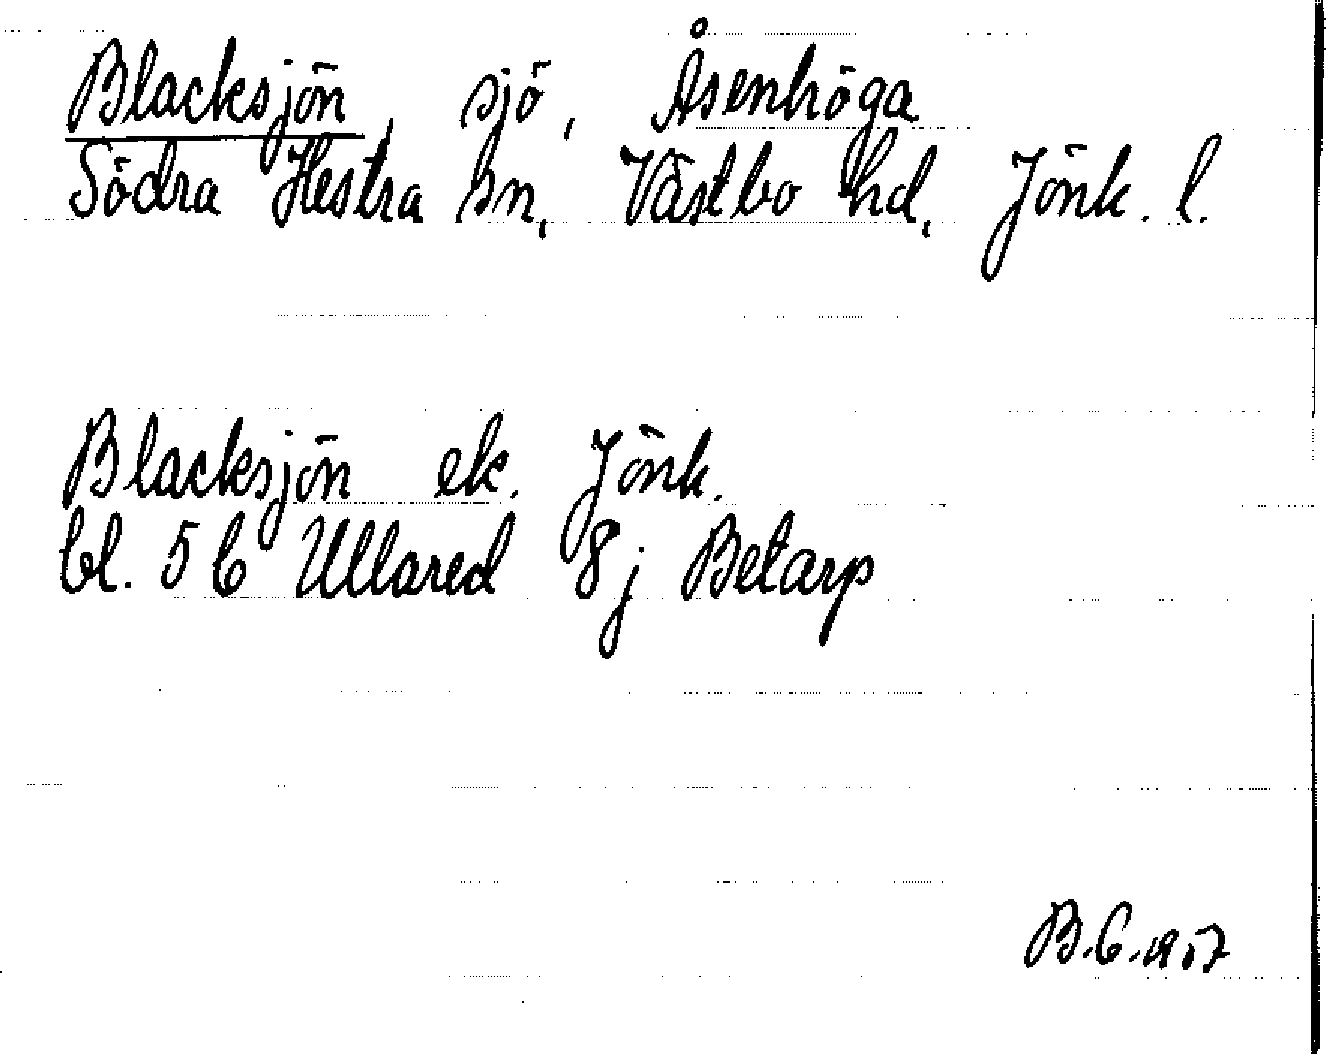 Blacksjön, sjö, Åsenhöga
Södra Hestra sn, Västbo hd, Jönk. l.
Blacksjön ek. Jönk.
bl. 5 C Ullared 8 j Betarp
B.C. 1957